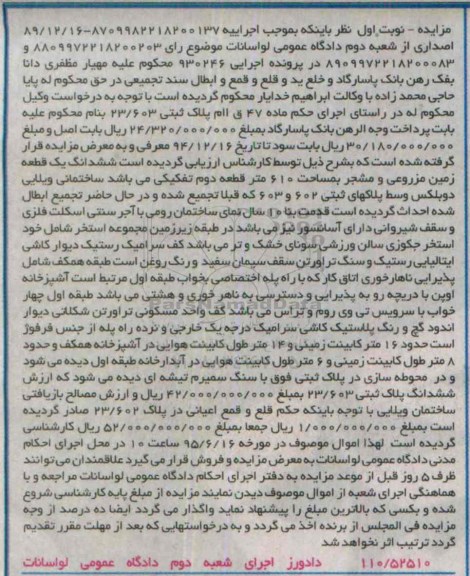 مزایده - نوبت اول نظر باینکه بموجب اجراییه ۸۷۰۹۹۸۲۲۱۸۲۰۰۱۳۷-۸۹/۱۲/۱۶
اصداری از شعبه دوم دادگاه عمومی لواسانات موضوع رای ۸۸۰۹۹۷۲۲۱۸۲۰۰۲۰۳ و
۸۹۰۹۹۷۲۲۱۸۲۰۰۰۸۳ در پرونده اجرایی ۹۳۰۲۴۶ محکوم علیه مهیار مظفری دانا
بفک رهن بانک پاسارگاد و خلع ید و قلع و قمع و ابطال سند تجمیعی در حق محکوم له پایا
حاجی محمد زاده با وکالت ابراهیم خدایار محکوم گردیده است با توجه به درخواست وکیل
محکوم له در راستای اجرای حکم ماده ۴۷ ق اام پلاک ثبتی ۲۳/۶۰۳ بنام محکوم علیه
بابت پرداخت وجه الرهن بانک پاسارگاد بمبلغ ۲۴/۳۲۰/۰۰۰/۰۰۰ ریال بابت اصل و مبلغ
۳۰/۱۸۰/۰۰۰/۰۰۰ ریال بابت سود تا تاریخ ۹۴/۱۲/۱۶ معرفی و به معرض مزایده قرار
گرفته شده است که بشرح ذیل توسط کارشناس ارزیابی گردیده است ششدانگ یک قطعه
زمین مزروعی و مشجر بمساحت ۶۱۰ متر قطعه دوم تفکیکی می باشد ساختمانی ویلایی
دوبلکس وسط پلاکهای ثبتی ۶۰۲ و ۶۰۳ که قبلا تجمیع شده و در حال حاضر تجمیع ابطال
شده احداث گردیده است قدمت بنا ۱۰ سال نمای ساختمان رومی با آجر سنتی اسکلت فلزی
و سقف شیروانی دارای آسانسور نیز می باشد در طبقه زیرزمین مجموعه استخر شامل خود
استخر جکوزی سالن ورزشی سونای خشک و تر می باشد کف سرامیک رستیک دیوار کاشی
ایتالیایی رستیک و سنگ تراورتن سقف سیمان سفید و رنگ روغن است طبقه همکف شامل
پذیرایی ناهارخوری اتاق کار که با راه پله اختصاصی بخواب طبقه اول مرتبط است آشپزخانه
اوپن با دریچه رو به پذیرایی و دسترسی به ناهر خوری و هشتی می باشد طبقه اول چهار
خواب با سرویس تی وی روم و تراس می باشد کف واحد مسکونی تراورتن شکلاتی دیوار
اندود گچ و رنگ پلاستیک کاشی سرامیک درجه یک خارجی و نرده راه پله از جنس فرفوژ
است حدود ۱۶ متر کابینت زمینی و ۱۴ متر طول کابینت هوایی در آشپزخانه همکف و حدود
۸ متر طول کابینت زمینی و ۶ متر طول کابینت هوایی در آبدارخانه طبقه اول دیده می شود
و در محوطه سازی در پلاک ثبتی فوق با سنگ سمیرم تیشه ای دیده می شود که ارزش
ششدانگ پلاک ثبتی ۲۳/۶۰۳ بمبلغ ۴۲/۰۰۰/۰۰۰/۰۰۰ ریال و ارزش مصالح بازیافتی
ساختمان ویلایی با توجه باینکه حکم قلع و قمع اعیانی در پلاک ۲۳/۶۰۲ صادر گردیده
است بمبلغ ۱/۰۰۰/۰۰۰/۰۰۰ ریال جمعا بمبلغ ۵۲/۰۰۰/۰۰۰/۰۰۰ ریال کارشناسی
گردیده است لهذا اموال موصوف در مورخه ۹۵/۶/۱۶ ساعت ۱۰ در محل اجرای احکام
مدنی دادگاه عمومی لواسانات به معرض مزایده و فروش قرار می گیرد علاقمندان می توانند
ظرف ۵ روز قبل از موعد مزایده به دفتر اجرای احکام دادگاه عمومی لواسانات مراجعه و با
هماهنگی اجرای شعبه از اموال موصوف دیدن نمایند مزایده از مبلغ پایه کارشناسی شروع
شده و بکسی که بالاترین مبلغ را پیشنهاد نماید واگذار می گردد ایضا ده درصد از وجه
مزایده فی المجلس از برنده اخذ می گردد و به درخواستهایی که بعد از مهلت مقرر تقدیم
گردد ترتیب اثر نخواهد شد
۱۱۰/۵۲۵۱۰ دادورز اجرای شعبه دوم دادگاه عمومی لواسانات